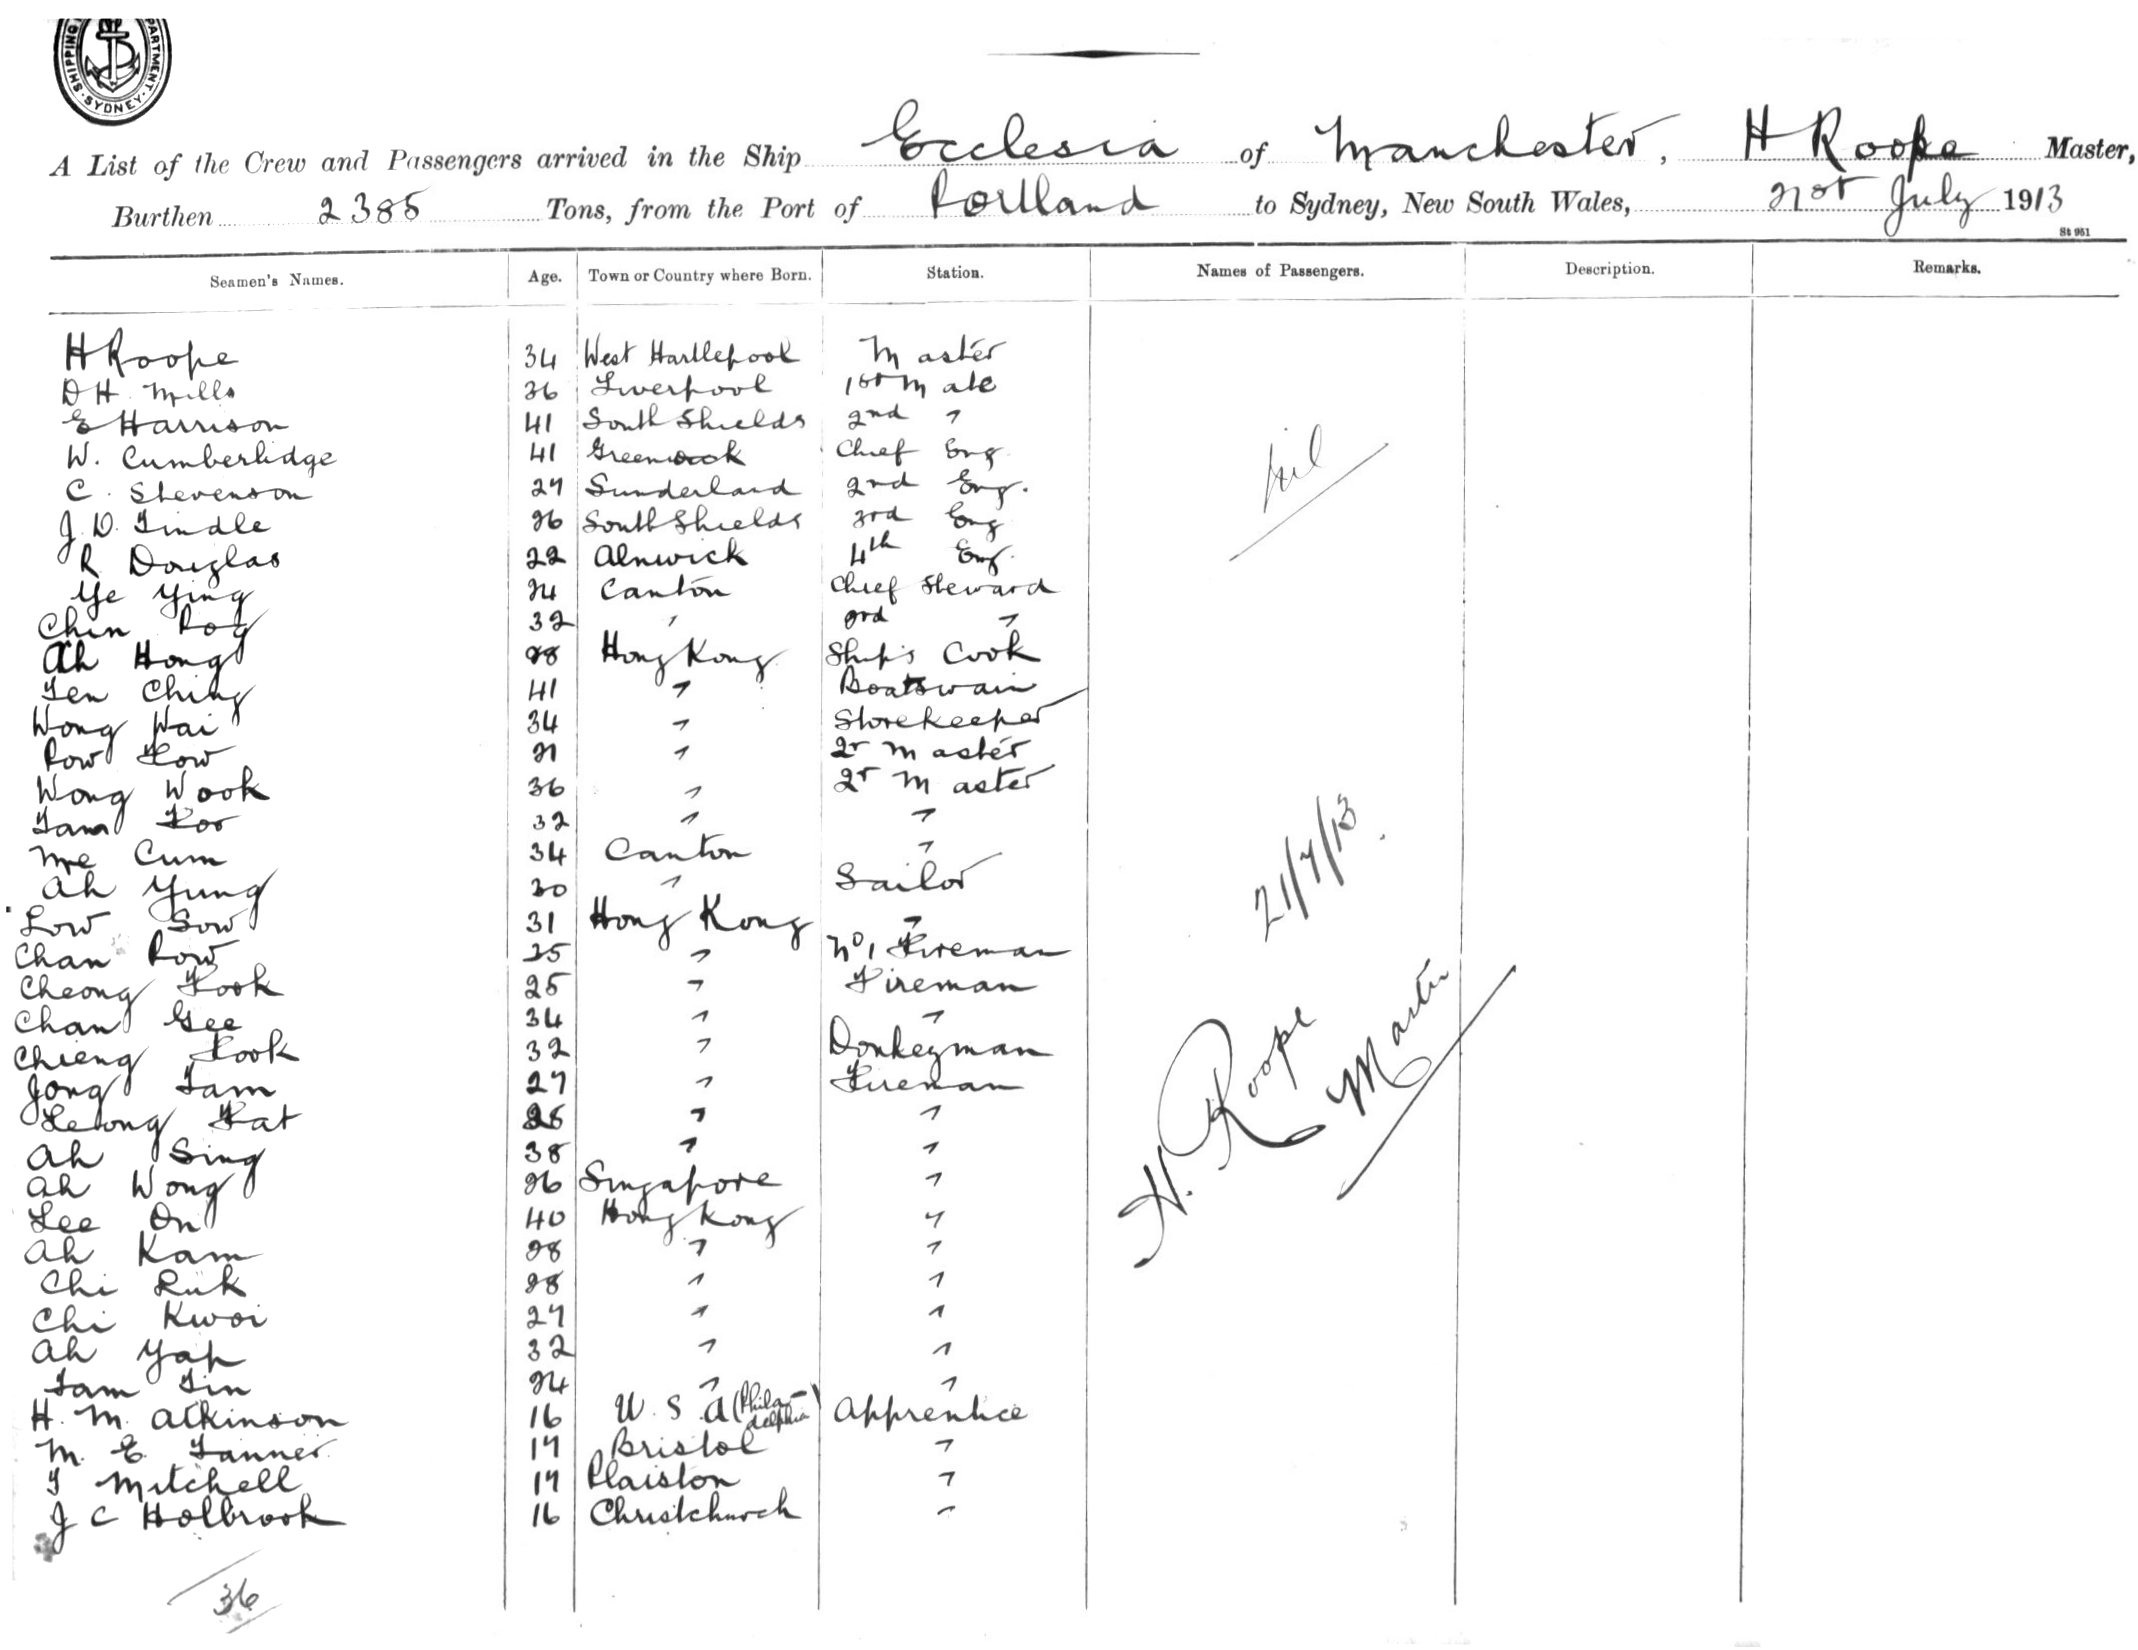 SHIPPING DEPARTMENT · SYDNEY ·
A List of the Crew and Passengers arrived in the Ship Ecclesia of Manchester, H Roope Master,
Burthen 2385 Tons, from the Port of Portland to Sydney, New South Wales, 21st July 1913
St 951
Seamen's Names. Age. Town or Country where Born. Station. Names of Passengers. Description. Remarks.
H Roope 34 West Hartlepool Master
D H. Mills 36 Liverpool 1st Mate
E Harrison 41 South Shields 2nd "
W. Cumberlidge 41 Greenock Chief Eng
C. Stevenson 27 Sunderland 2nd Eng.
J. D. Tindle 26 South Shields 3rd Eng
R Douglas 22 Alnwick 4th Eng.
Ye Ying 24 Canton Chief Steward
Chin 32 " "
Ah Hong 28 Hong Kong Ship's Cook
Ching 41 " Boatswain
Wong Wai 34 " Storekeeper
21 " 2r Master
Wong Wook 36 " 2r Master
32 " "
Cum 34 Canton "
Ah Yung 30 " Sailor
Low Sow 31 Hong Kong "
Chan 25 " No 1 Fireman
Cheong Fook 25 " Fireman
Chan Gee 34 " "
Chieng Fook 32 " Donkeyman
Jong Tam 27 " Fireman
Leong Fat " "
Ah Sing 38 " "
Ah Wong 26 Singapore "
Lee On 40 Hong Kong "
Ah Kam 28 " "
Chi 28 " "
Chi Kwoi 27 " "
Ah Yap 32 " "
Tam Tin 24 " "
H. M. Atkinson 16 U. S. A (Philadelphia) Apprentice
M. E. Tanner 17 Bristol "
T Mitchell 17 Plaiston "
J C Holbrook 16 Christchurch "
36
Nil
21/7/13.
H. Roope
Master